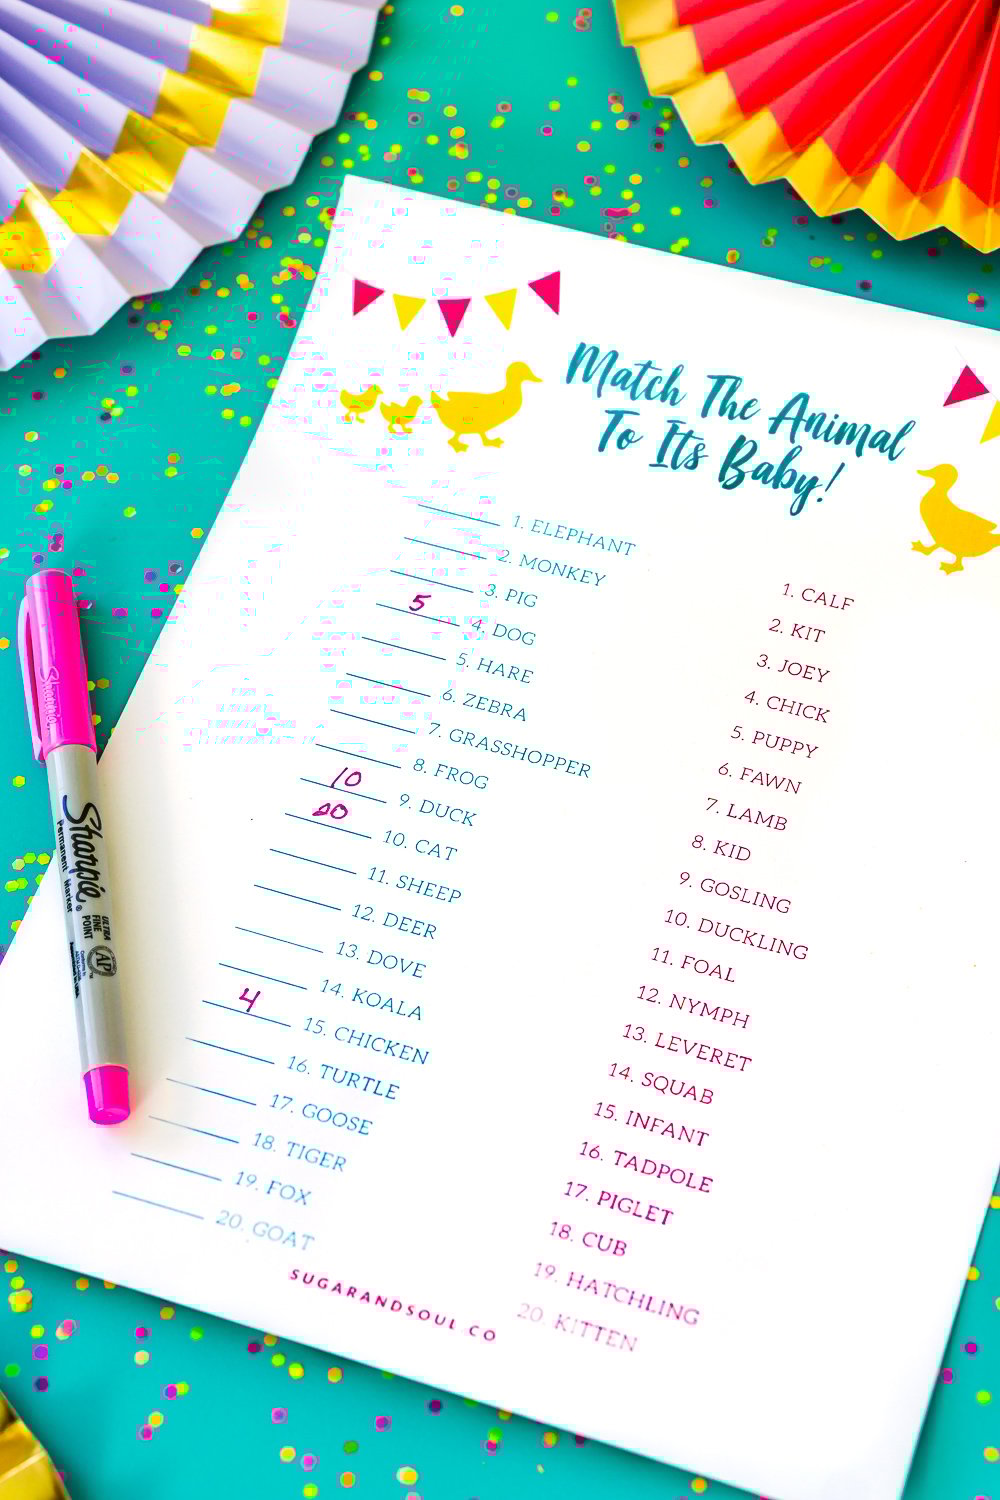 Match The Animal
To Its Baby!
1. ELEPHANT
2. MONKEY
3. PIG
5 4. DOG
5. HARE
6. ZEBRA
7. GRASSHOPPER
8. FROG
10 9. DUCK
20 10. CAT
11. SHEEP
12. DEER
13. DOVE
14. KOALA
4 15. CHICKEN
16. TURTLE
17. GOOSE
18. TIGER
19. FOX
20. GOAT
1. CALF
2. KIT
3. JOEY
4. CHICK
5. PUPPY
6. FAWN
7. LAMB
8. KID
9. GOSLING
10. DUCKLING
11. FOAL
12. NYMPH
13. LEVERET
14. SQUAB
15. INFANT
16. TADPOLE
17. PIGLET
18. CUB
19. HATCHLING
20. KITTEN
SUGARANDSOUL.CO
Sharpie
Sharpie®
Permanent Marker
ULTRA
FINE
POINT
AP